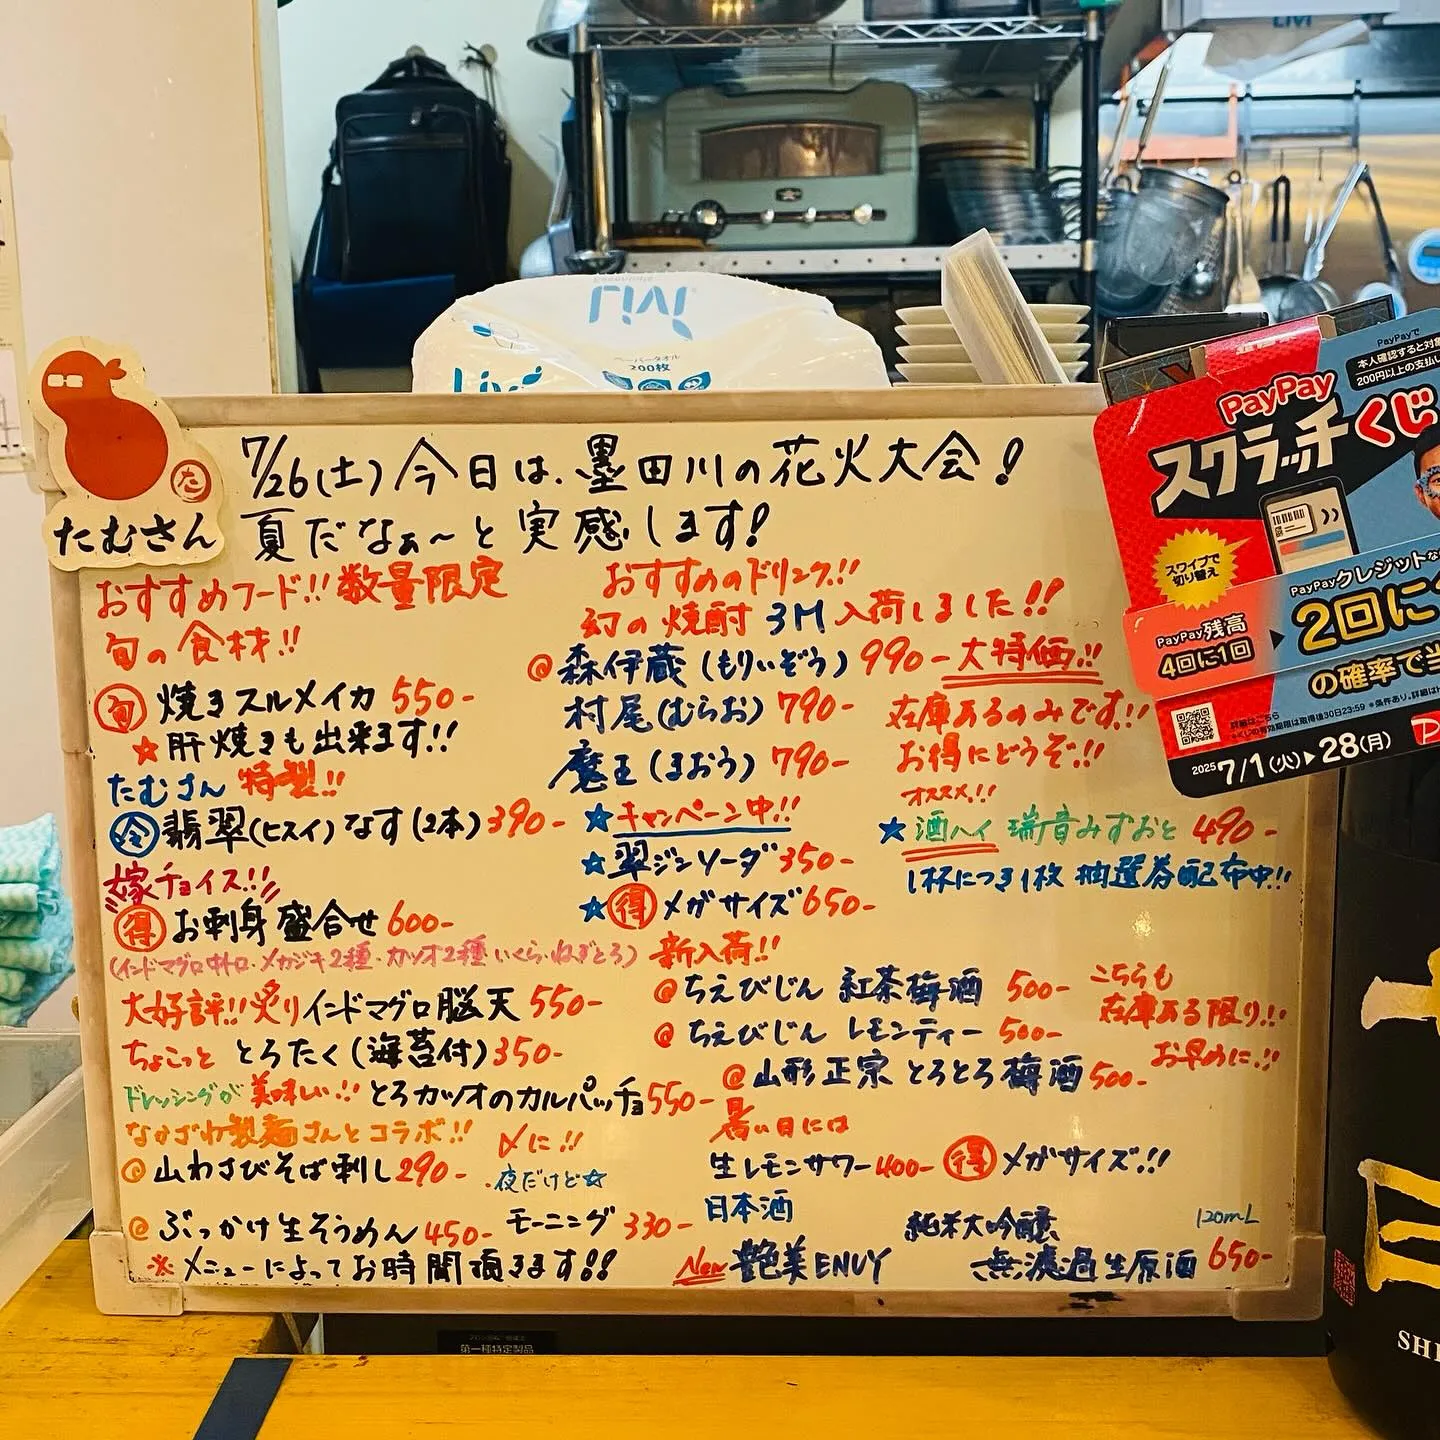 Livi
Livi
ペーパータオル
200枚
Livi
たむさん
た
7/26(土)今日は、墨田川の花火大会!
夏だなぁ〜と実感します!
おすすめフード!!数量限定
旬の食材!!
旬 焼きスルメイカ 550-
★肝焼きも出来ます!!
たむさん特製!!
冷 翡翠(ヒスイ)なす(2本)390-
嫁チョイス!!
得 お刺身盛合せ 600-
(インドマグロ中トロ・メカジキ2種・カツオ2種 いくら・ねぎとろ)
大好評!!炙りインドマグロ脳天 550-
ちょこっと とろたく(海苔付)350-
ドレッシングが美味しい!!とろカツオのカルパッチョ550-
なかざわ製麺さんとコラボ!!
〆に!!
@山わさびそば刺し290-
・夜だけど☆
@ぶっかけ生そうめん450- モーニング330-
※メニューによってお時間頂きます!!
おすすめのドリンク!!
幻の焼酎 3M 入荷しました!!
@森伊蔵(もりいぞう)990-大特価!!
村尾(むらお)790-
魔王(まおう)790-
在庫あるのみです!!
お得にどうぞ!!
★キャンペーン中!!
★翠ジンソーダ350-
★得 メガサイズ650-
オススメ!!
★酒ハイ 瑞音みずおと 490-
1杯につき1枚 抽選券配布中!!
新入荷!!
@ちえびじん 紅茶梅酒 500-
@ちえびじん レモンティー 500-
@山形正宗 とろとろ梅酒500-
こちらも
在庫ある限り!!
お早めに!!
暑い日には
生レモンサワー400- 得 メガサイズ!!
日本酒
New 艶美ENVY
純米大吟醸
無濾過生原酒
120mL
650-
PayPayで
本人確認すると対象
200円以上の支払い
PayPay
スクラッチくじ
スワイプで
切り替え
PayPay残高
4回に1回
PayPayクレジットな
2回に
の確率で当
詳細はこちら
2025 7/1(火)▶28(月)
第一種特定製品
SHI